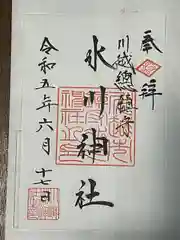 奉拝
川越總鎮守
氷川神社
令和五年六月十七日